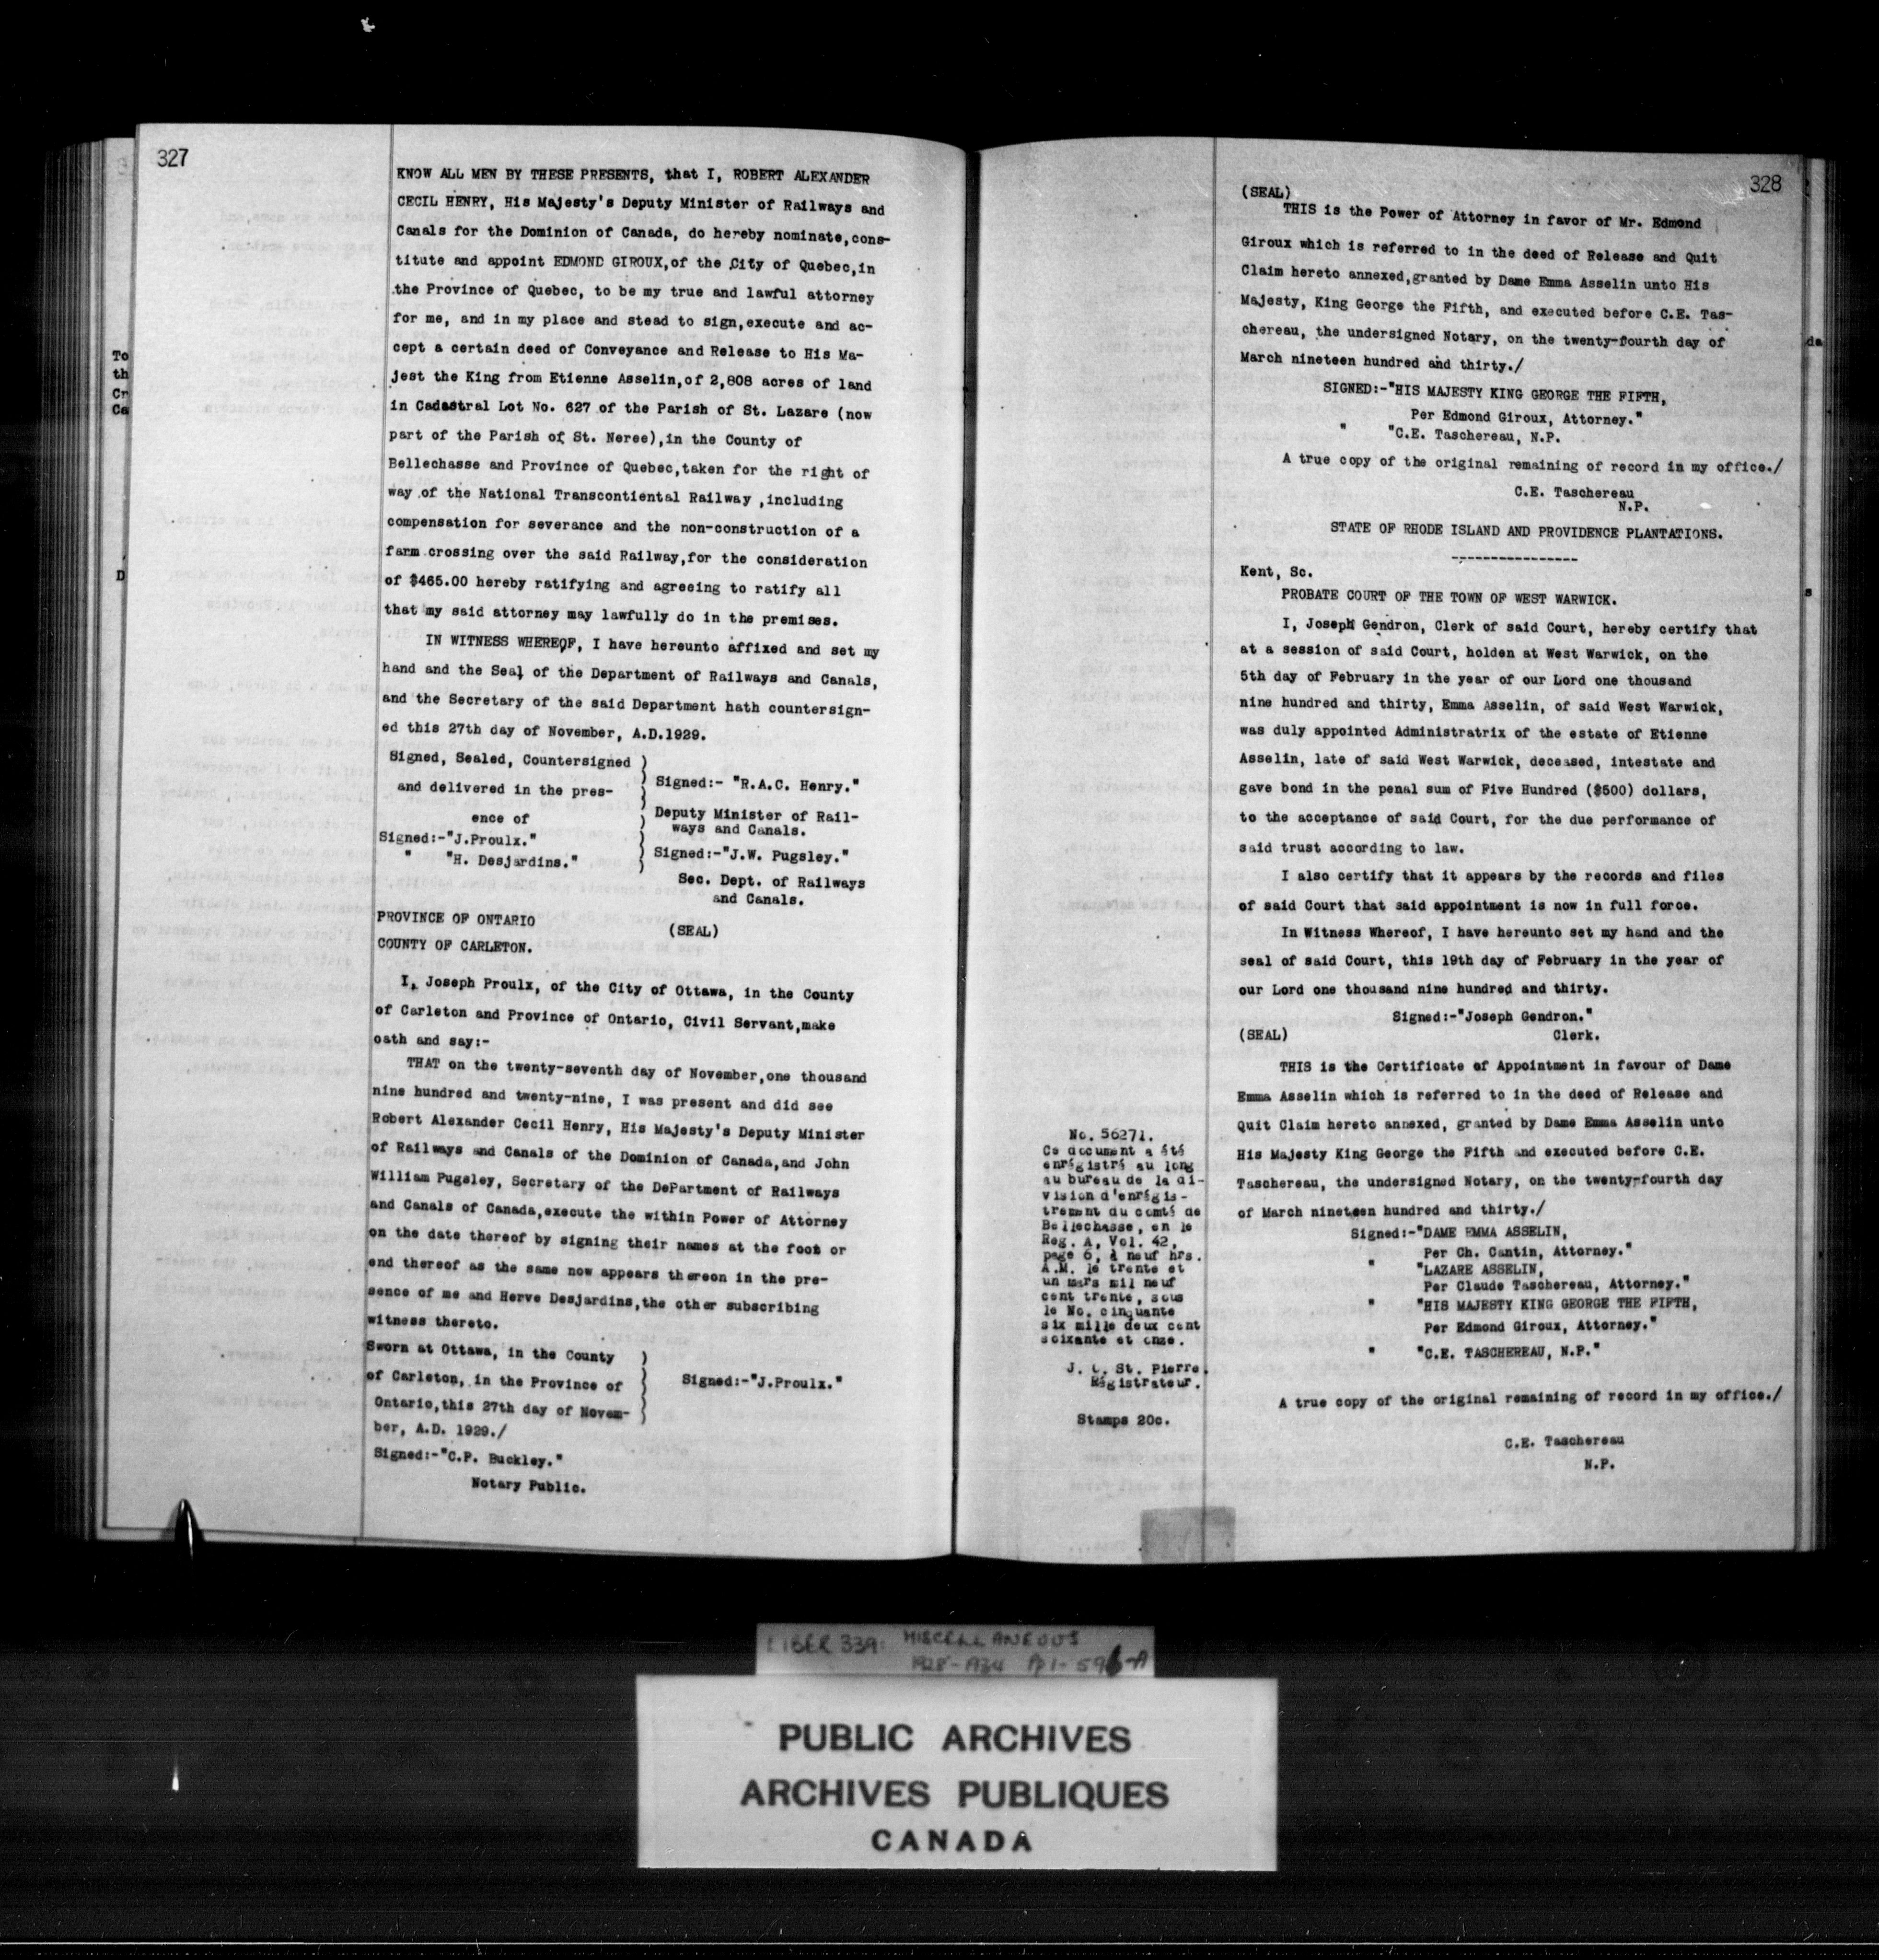 327
KNOW ALL MEN BY THESE PRESENTS, that I, ROBERT ALEXANDER
CECIL HENRY, His Majesty's Deputy Minister of Railways and
Canals for the Dominion of Canada, do hereby nominate,cons-
titute and appoint EDMOND GIROUX,of the City of Quebec,in
the Province of Quebec, to be my true and lawful attorney
for me, and in my place and stead to sign,execute and ac-
cept a certain deed of Conveyance and Release to His Ma-
jest the King from Etienne Asselin,of 2,808 acres of land
in Cadastral Lot No. 627 of the Parish of St. Lazare (now
part of the Parish of St. Neree),in the County of
Bellechasse and Province of Quebec,taken for the right of
way of the National Transcontiental Railway ,including
compensation for severance and the non-construction of a
farm crossing over the said Railway,for the consideration
of $465.00 hereby ratifying and agreeing to ratify all
that my said attorney may lawfully do in the premises.
IN WITNESS WHEREOF, I have hereunto affixed and set my
hand and the Seal of the Department of Railways and Canals,
and the Secretary of the said Department hath countersign-
ed this 27th day of November, A.D.1929.
Signed, Sealed, Countersigned )
and delivered in the pres- ) Signed:- "R.A.C. Henry."
ence of ) Deputy Minister of Rail-
ways and Canals.
Signed:-"J.Proulx." )
" "H. Desjardins." ) Signed:-"J.W. Pugsley."
Sec. Dept. of Railways
and Canals.
PROVINCE OF ONTARIO
(SEAL)
COUNTY OF CARLETON.
I, Joseph Proulx, of the City of Ottawa, in the County
of Carleton and Province of Ontario, Civil Servant,make
oath and say:-
THAT on the twenty-seventh day of November,one thousand
nine hundred and twenty-nine, I was present and did see
Robert Alexander Cecil Henry, His Majesty's Deputy Minister
of Railways and Canals of the Dominion of Canada,and John
William Pugsley, Secretary of the DePartment of Railways
and Canals of Canada,execute the within Power of Attorney
on the date thereof by signing their names at the foot or
end thereof as the same now appears thereon in the pre-
sence of me and Herve Desjardins,the other subscribing
witness thereto.
Sworn at Ottawa, in the County )
of Carleton, in the Province of ) Signed:-"J.Proulx."
Ontario,this 27th day of Novem- )
ber, A.D. 1929./
Signed:-"C.P. Buckley."
Notary Public.
To
th
Cr
Ca
D
328
(SEAL)
THIS is the Power of Attorney in favor of Mr. Edmond
Giroux which is referred to in the deed of Release and Quit
Claim hereto annexed,granted by Dame Emma Asselin unto His
Majesty, King George the Fifth, and executed before C.E. Tas-
chereau, the undersigned Notary, on the twenty-fourth day of
March nineteen hundred and thirty./
SIGNED:-"HIS MAJESTY KING GEORGE THE FIFTH,
Per Edmond Giroux, Attorney."
" "C.E. Taschereau, N.P.
A true copy of the original remaining of record in my office./
C.E. Taschereau
N.P.
STATE OF RHODE ISLAND AND PROVIDENCE PLANTATIONS.
----------------
Kent, Sc.
PROBATE COURT OF THE TOWN OF WEST WARWICK.
I, Joseph Gendron, Clerk of said Court, hereby certify that
at a session of said Court, holden at West Warwick, on the
5th day of February in the year of our Lord one thousand
nine hundred and thirty, Emma Asselin, of said West Warwick,
was duly appointed Administratrix of the estate of Etienne
Asselin, late of said West Warwick, deceased, intestate and
gave bond in the penal sum of Five Hundred ($500) dollars,
to the acceptance of said Court, for the due performance of
said trust according to law.
I also certify that it appears by the records and files
of said Court that said appointment is now in full force.
In Witness Whereof, I have hereunto set my hand and the
seal of said Court, this 19th day of February in the year of
our Lord one thousand nine hundred and thirty.
Signed:-"Joseph Gendron."
(SEAL) Clerk.
THIS is the Certificate of Appointment in favour of Dame
Emma Asselin which is referred to in the deed of Release and
Quit Claim hereto annexed, granted by Dame Emma Asselin unto
His Majesty King George the Fifth and executed before C.E.
Taschereau, the undersigned Notary, on the twenty-fourth day
of March nineteen hundred and thirty./
Signed:-"DAME EMMA ASSELIN,
Per Ch. Cantin, Attorney."
" "LAZARE ASSELIN,
Per Claude Taschereau, Attorney."
" "HIS MAJESTY KING GEORGE THE FIFTH,
Per Edmond Giroux, Attorney."
" "C.E. TASCHEREAU, N.P."
A true copy of the original remaining of record in my office./
C.E. Taschereau
N.P.
No. 56271.
Ce document a été
enrégistré au long
au bureau de la di-
vision d'enrégis-
trement du comté de
Bellechasse, en le
Reg. A, Vol. 42,
page 6, à neuf hrs.
A.M. le trente et
un mars mil neuf
cent trente, sous
le No. cinquante
six mille deux cent
soixante et onze.
J. St. Pierre.
Régistrateur.
Stamps 20c.
da
s
LIBER 339: MISCELLANEOUS
1928-1934 Pp 1-596-A
PUBLIC ARCHIVES
ARCHIVES PUBLIQUES
CANADA